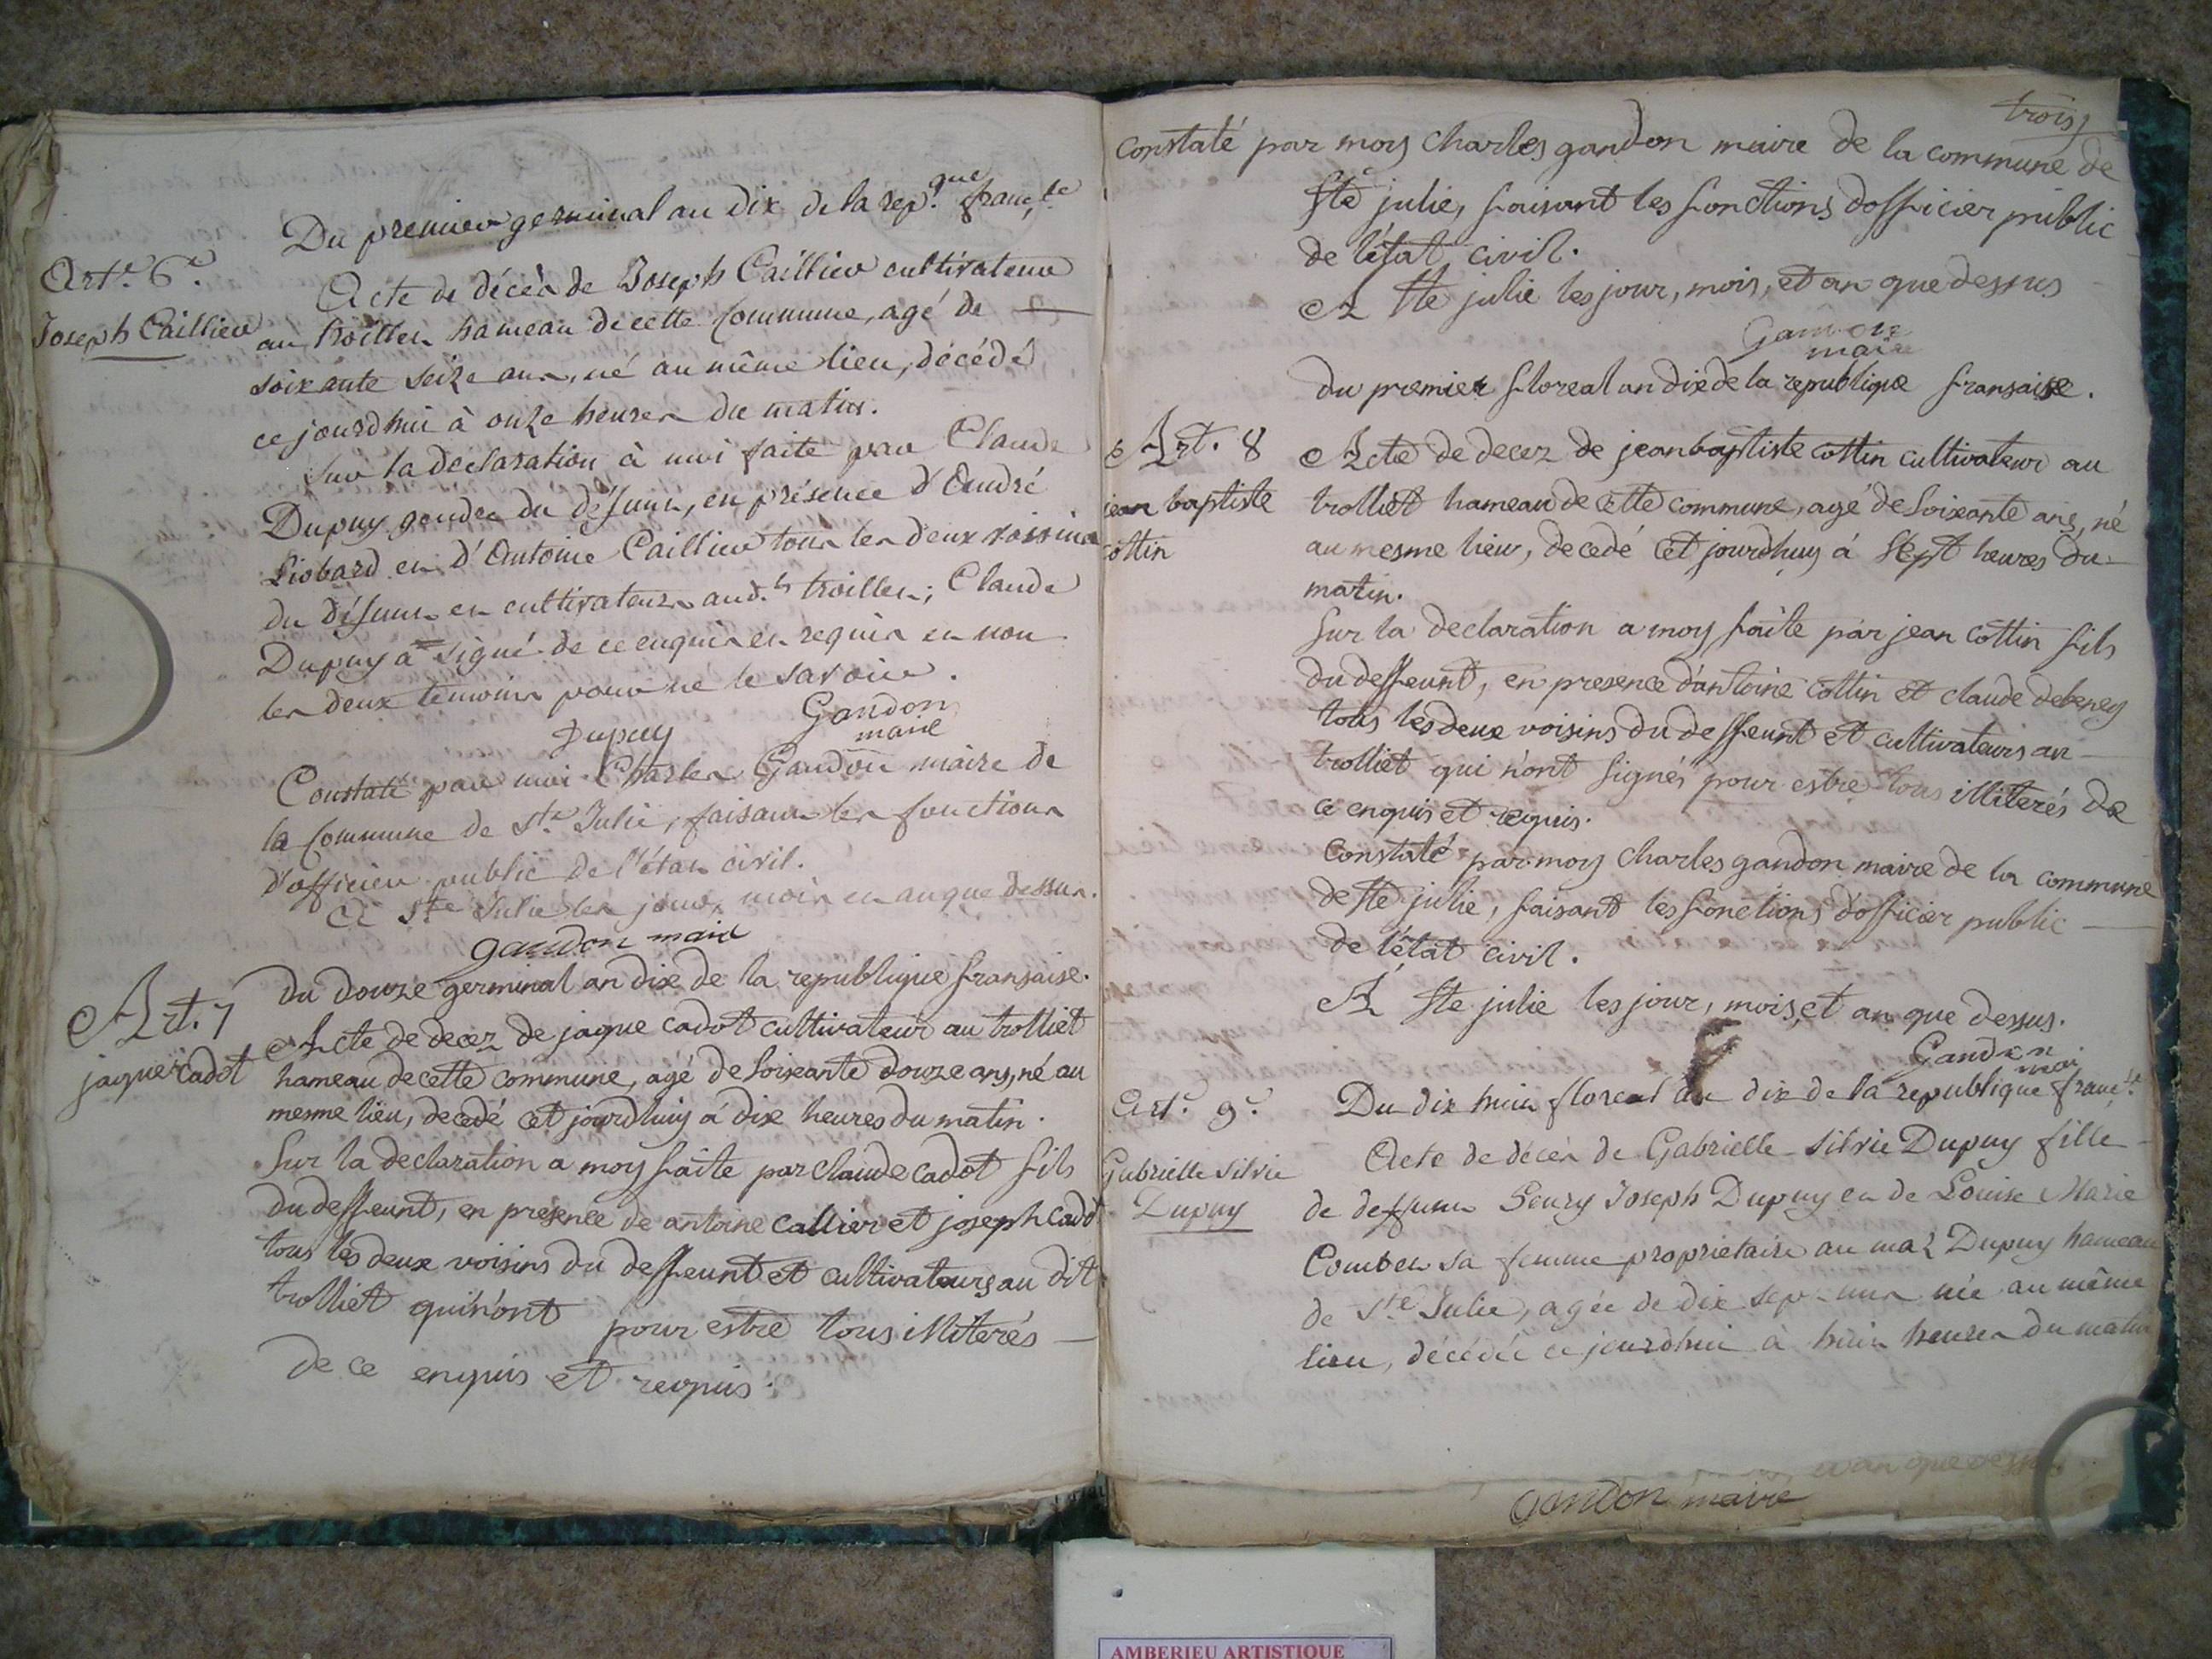 Du premier germinal an dix de la rep.que franç.se
Art.e 6.e
Joseph Caillier
Acte de décès de Joseph Caillier cultivateur
au troillet hameau de cette Commune, agé de
soixante seize ans, né au même lieu, décédé
ce jourd'hui à onze heures du matin.
Sur la declaration à moi faite par Claude
Dupuy gendre du défunt, en présence d'André
Liobard et d'Antoine Caillier tous les deux voisins
du défunt et cultivateurs aud.t troillet; Claude
Dupuy a signé de ce enquis et requis et non
les deux temoins pour ne le savoir.
Dupuy
Gandon
maire
Constaté par moi Charles Gandon maire de
la Commune de S.te Julie, faisant les fonctions
d'officier public de l'état civil.
A S.te Julie les jour, mois et an que dessus.
gandon maire
Art. 7
jaque cadot
du douze germinal an dix de la republique fransaise.
Acte de decez de jaque cadot cultivateur au trolliet
hameau de cette commune, agé de soixante douze ans, né au
mesme lieu, decedé cet jourdhuy a dix heures du matin.
Sur la declaration a moy faite par claude cadot fils
du deffeunt, en presence de antoine callier et joseph cadot
tous les deux voisins du deffeunt et cultivateurs au dit
trolliet qui n'ont pour estre tous illiterés
de ce enquis et requis.
trois
constaté par moy charles gandon maire de la commune de
ste julie, faisant les fonctions dofficier public
de l'état civil.
A ste julie les jour, mois, et an que dessus
Gandon
maire
du premier floreal an dix de la republique fransaise.
Art. 8
jean baptiste
cottin
Acte de decez de jean baptiste cottin cultivateur au
trolliet hameau de cette commune, agé de soixante ans, né
au mesme lieu, decedé cet jourdhuy á sept heures du
matin.
Sur la declaration a moy faite par jean cottin fils
du deffeunt, en presence d'antoine cottin et claude debeney
tous les deux voisins du deffeunt et cultivateurs au
trolliet qui n'ont signés pour estre tous illiterés de
ce enquis et requis.
Constaté par moy charles gandon maire de la commune
de ste julie, faisant les fonctions d'officier public
de l'état civil.
A ste julie les jour, mois, et an que dessus.
Gandon
mai
Art.e 9.e
Gabrielle Silvie
Dupuy
Du dix huit floreal an dix de la republique franç.se
Acte de décès de Gabrielle Silvie Dupuy fille
de deffunt Joseph Dupuy et de Louise Marie
Combet sa femme proprietaire au maz Dupuy hameau
de S.te Julie, agée de dix sept ans née au même
lieu, décédée ce jourdhui à huit heures du matin
et an que dessus
Gandon maire
AMBERIEU ARTISTIQUE